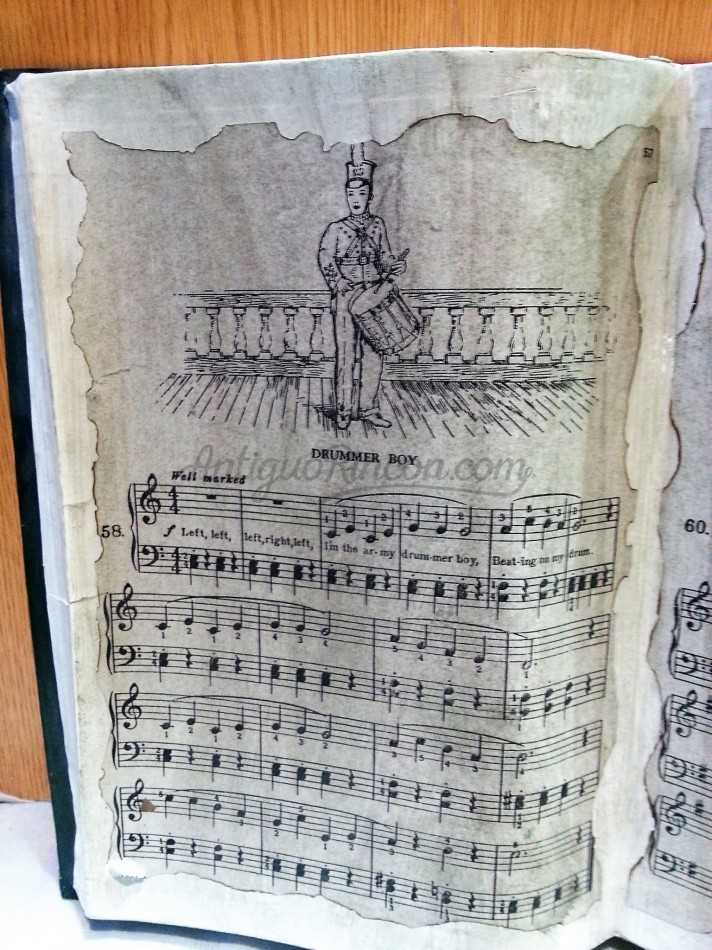 57
DRUMMER BOY
AntiguoRincon.com
Well marked
58.
f Left, left, left, right, left, I'm the ar-my drum-mer boy, Beat-ing on my drum.
60.